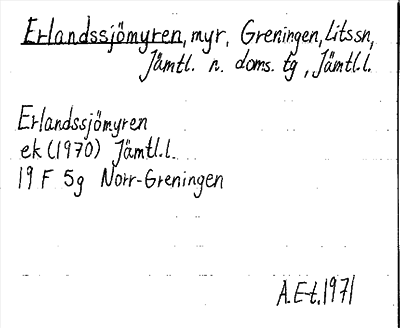 Erlandssjömyren, myr, Greningen, Litssn,
Jämtl. n. doms. tg, Jämtl.l.
Erlandssjömyren
ek (1970) Jämtl.l.
19 F 5g Norr-Greningen
A.E-t. 1971